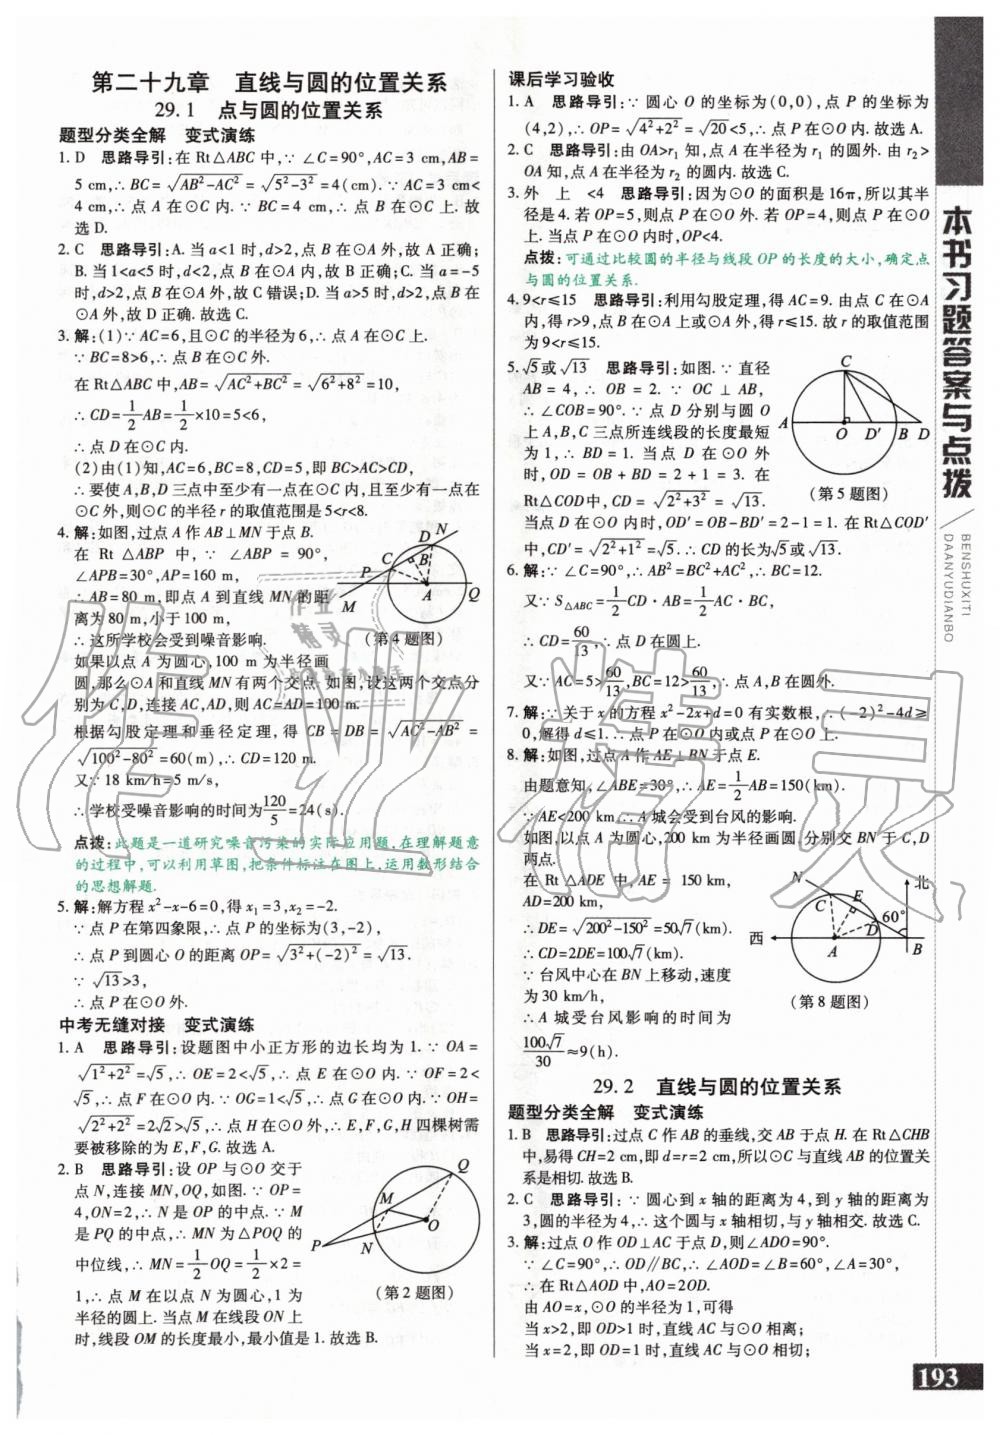 第二十九章　直线与圆的位置关系
29.1　点与圆的位置关系
题型分类全解　变式演练
1. D　思路导引:在 Rt△ABC 中,∵ ∠C=90°,AC=3 cm,AB=
5 cm,∴ BC=√(AB²-AC²)=√(5²-3²)=4(cm). ∵ AC=3 cm<
4 cm,∴ 点 A 在⊙C 内. ∵ BC=4 cm,∴ 点 B 在⊙C 上. 故
选 D.
2. C　思路导引:A. 当 a<1 时,d>2,点 B 在⊙A 外,故 A 正确;
B. 当 1<a<5 时,d<2,点 B 在⊙A 内,故 B 正确;C. 当 a=-5
时,d>2,点 B 在⊙A 外,故 C 错误;D. 当 a>5 时,d>2,点 B
在⊙A 外,故 D 正确. 故选 C.
3. 解:(1)∵ AC=6,且⊙C 的半径为 6,∴ 点 A 在⊙C 上.
∵ BC=8>6,∴ 点 B 在⊙C 外.
在 Rt△ABC 中,AB=√(AC²+BC²)=√(6²+8²)=10,
∴ CD=1/2AB=1/2×10=5<6,
∴ 点 D 在⊙C 内.
(2)由(1)知,AC=6,BC=8,CD=5,即 BC>AC>CD,
∴ 要使 A,B,D 三点中至少有一点在⊙C 内,且至少有一点在
⊙C 外,则⊙C 的半径 r 的取值范围是 5<r<8.
4. 解:如图,过点 A 作 AB⊥MN 于点 B.
在 Rt △ABP 中, ∵ ∠ABP = 90°,
∠APB=30°,AP=160 m,
∴ AB=80 m,即点 A 到直线 MN 的距
离为 80 m,小于 100 m,
∴ 这所学校会受到噪音影响.
如果以点 A 为圆心,100 m 为半径画
圆,那么⊙A 和直线 MN 有两个交点. 如图,设这两个交点分
别为 C,D,连接 AC,AD,则 AC=AD=100 m.
根据勾股定理和垂径定理,得 CB = DB = √(AC²-AB²)
=√(100²-80²)=60(m),∴ CD=120 m.
又∵ 18 km/h=5 m/s,
∴ 学校受噪音影响的时间为120/5=24(s).
点拨:此题是一道研究噪音污染的实际应用题,在理解题意
的过程中,可以利用草图,把条件标注在图上,运用数形结合
的思想解题.
D N
C B
P
M A Q
(第 4 题图)
5. 解:解方程 x²-x-6=0,得 x₁=3,x₂=-2.
∵ 点 P 在第四象限,∴ 点 P 的坐标为(3,-2),
∴ 点 P 到圆心 O 的距离 OP=√(3²+(-2)²)=√13.
∵ √13>3,
∴ 点 P 在⊙O 外.
中考无缝对接　变式演练
1. A　思路导引:设题图中小正方形的边长均为 1. ∵ OA=
√(1²+2²)=√5,∴ OE=2<√5,∴ 点 E 在⊙O 内. ∵ OF=2<
√5,∴ 点 F 在⊙O 内. ∵ OG=1<√5,∴ 点 G 在⊙O 内. ∵ OH=
√(2²+2²)=2√2>√5,∴ 点 H 在⊙O 外,∴ E,F,G,H 四棵树需
要被移除的为 E,F,G. 故选 A.
2. B　思路导引:设 OP 与⊙O 交于
点 N,连接 MN,OQ,如图. ∵ OP=
4,ON=2,∴ N 是 OP 的中点. ∵ M
是 PQ 的中点,∴ MN 为△POQ 的
中位线,∴ MN=1/2OQ=1/2×2=
1,∴ 点 M 在以点 N 为圆心,1 为
半径的圆上. 当点 M 在线段 ON 上
时,线段 OM 的长度最小,最小值是 1. 故选 B.
Q
M
O
P N
(第 2 题图)
课后学习验收
1. A　思路导引:∵ 圆心 O 的坐标为(0,0),点 P 的坐标为
(4,2),∴ OP=√(4²+2²)=√20<5,∴ 点 P 在⊙O 内. 故选 A.
2. C　思路导引:由 OA>r₁ 知,点 A 在半径为 r₁ 的圆外. 由 r₂>
OA 知,点 A 在半径为 r₂ 的圆内. 故选 C.
3. 外　上　<4　思路导引:因为⊙O 的面积是 16π,所以其半
径是 4. 若 OP=5,则点 P 在⊙O 外. 若 OP=4,则点 P 在⊙O
上. 当点 P 在⊙O 内时,OP<4.
点拨:可通过比较圆的半径与线段 OP 的长度的大小,确定点
与圆的位置关系.
4. 9<r≤15　思路导引:利用勾股定理,得 AC=9. 由点 C 在⊙A
内,得 r>9,点 B 在⊙A 上或⊙A 外,得 r≤15. 故 r 的取值范围
为 9<r≤15.
5. √5或√13　思路导引:如图. ∵ 直径
AB = 4, ∴ OB = 2. ∵ OC ⊥ AB,
∴ ∠COB=90°. ∵ 点 D 分别与圆 O
上 A,B,C 三点所连线段的长度最短
为 1,∴ BD = 1. 当点 D 在⊙O 外
时,OD = OB + BD = 2 + 1 = 3. 在
Rt△COD中,CD = √(2²+3²) = √13.
当点 D 在⊙O 内时,OD′=OB-BD′=2-1=1. 在 Rt△COD′
中,CD′=√(2²+1²)=√5. ∴ CD 的长为√5或√13.
C
A O D′ B D
(第 5 题图)
6. 解:∵ ∠C=90°,∴ AB²=BC²+AC²,∴ BC=12.
又∵ S△ABC=1/2CD·AB=1/2AC·BC,
∴ CD=60/13,∴ 点 D 在圆上.
又∵ AC=5>60/13,BC=12>60/13,∴ 点 A,B 在圆外.
7. 解:∵ 关于 x 的方程 x²-2x+d=0 有实数根,∴ (-2)²-4d≥
0,解得 d≤1. ∴ 点 P 在⊙O 内或点 P 在⊙O 上.
8. 解:如图,过点 A 作 AE⊥BN 于点 E.
由题意知,∠ABE=30°,∴ AE=1/2AB=150(km).
∵ AE<200 km,∴ A 城会受到台风的影响.
如图,以点 A 为圆心,200 km 为半径画圆,分别交 BN 于 C,D
两点.
在 Rt △ADE 中, AE = 150 km,
AD=200 km,
∴ DE=√(200²-150²)=50√7(km).
∴ CD=2DE=100√7(km).
∵ 台风中心在 BN 上移动,速度
为 30 km/h,
∴ A 城受台风影响的时间为
100√7/30≈9(h).
N 北
C E
D 60°
西 A B
(第 8 题图)
29.2　直线与圆的位置关系
题型分类全解　变式演练
1. B　思路导引:过点 C 作 AB 的垂线,交 AB 于点 H. 在 Rt△CHB
中,易得 CH=2 cm,即 d=r=2 cm,所以⊙C 与直线 AB 的位置关
系是相切. 故选 B.
2. C　思路导引: ∵ 圆心到 x 轴的距离为 4,到 y 轴的距离为
3,圆的半径为 4,∴ 这个圆与 x 轴相切,与 y 轴相交. 故选 C.
3. 解:过点 O 作 OD⊥AC 于点 D,则∠ADO=90°.
∵ ∠C=90°,∴ OD∥BC,∴ ∠AOD=∠B=60°,∠A=30°,
∴ 在 Rt△AOD 中,AO=2OD.
由 AO=x,⊙O 的半径为 1,可得
当 x>2,即 OD>1 时,直线 AC 与⊙O 相离;
当 x=2,即 OD=1 时,直线 AC 与⊙O 相切;
本书习题答案与点拨
BENSHUXITI
DAANYUDIANBO
193
作业精灵